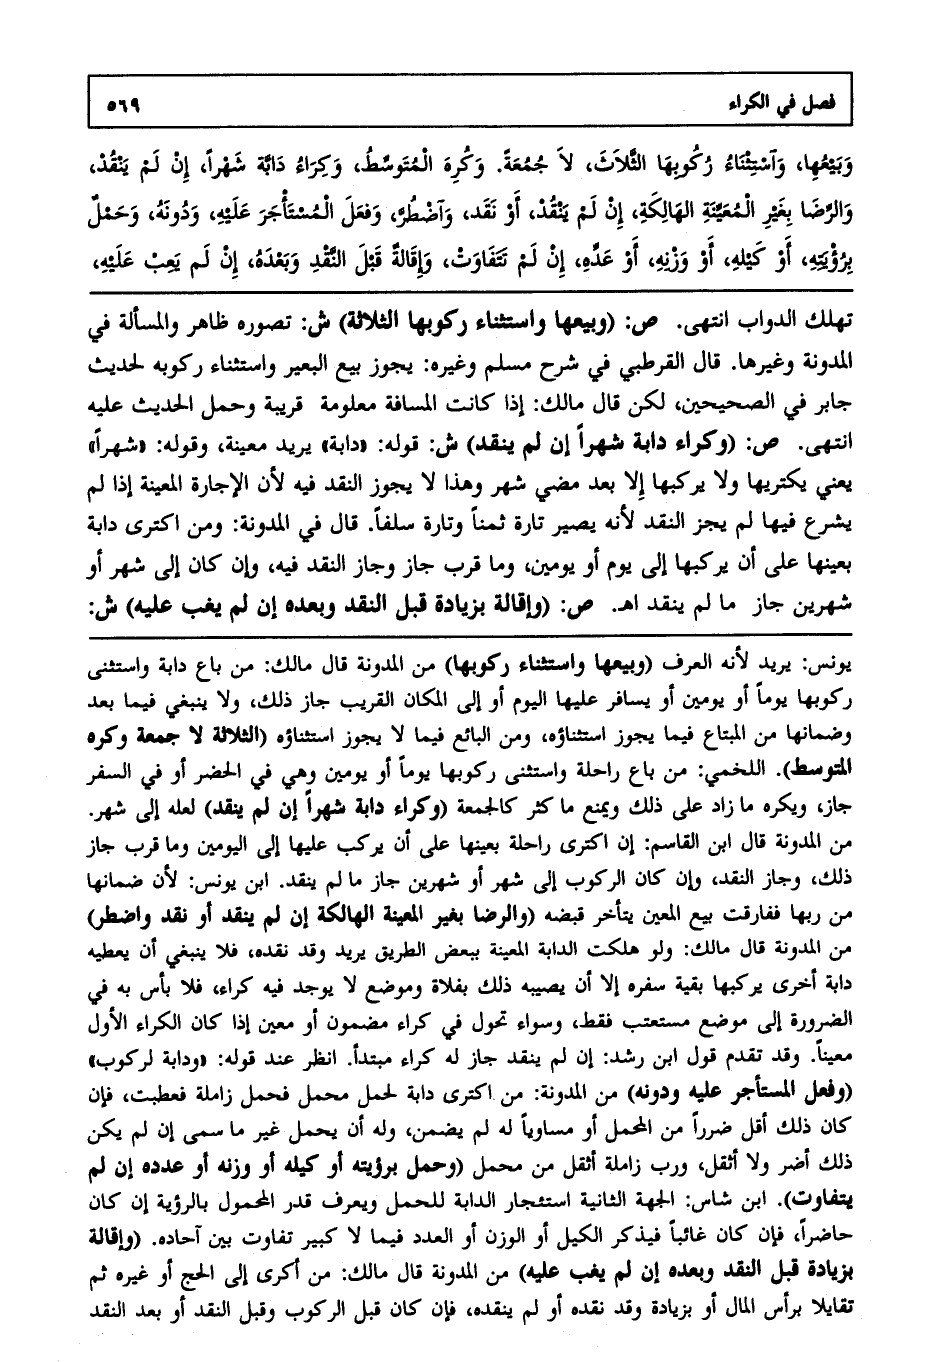 فصل في الكراء ٥٦٩
وَبَيْعُهَا، وَآسْتِثْنَاءُ رُكُوبِهَا الثَّلَاثَ، لاَ جُمُعَةً. وَكُرِهَ الْمُتَوسِّطُ، وَكِرَاءُ دَابَّة شَهْراً، إِنْ لَمْ يَنْقُدْ،
وَالرِّضَا بِغَيْرِ الْمُعَيَّنَةِ الهَالِكَةِ، إِنْ لَمْ يَنْقُدْ، أَوْ نَقَد، وَآضْطُرَّ، وَفعَلَ الْمُسْتَأْجَرَ عَلَيْهِ، وَدُونَهُ، وَحَمْلٌ
بِرُؤْيَتِهِ، أَوْ كَيْلِهِ، أَوْ وَزْنِهِ، أَوْ عَدِّهِ، إِنْ لَمْ تَتَفَاوَتْ، وَإِقَالَةٌ قَبْلَ النَّقْدِ وَبَعْدَهُ، إِنْ لَم يَغِبْ عَلَيْهِ،
تهلك الدواب انتهى. ص: (وبيعها واستثناء ركوبها الثلاثة) ش: تصوره ظاهر والمسألة في
المدونة وغيرها. قال القرطبي في شرح مسلم وغيره: يجوز بيع البعير واستثناء ركوبه لحديث
جابر في الصحيحين، لكن قال مالك: إذا كانت المسافة معلومة قريبة وحمل الحديث عليه
انتهى. ص: (وكراء دابة شهراً إن لم ينقد) ش: قوله: «دابة» يريد معينة، وقوله: «شهراً»
يعني يكتريها ولا يركبها إلا بعد مضي شهر وهذا لا يجوز النقد فيه لأن الإجارة المعينة إذا لم
يشرع فيها لم يجز النقد لأنه يصير تارة ثمناً وتارة سلفاً. قال في المدونة: ومن اكترى دابة
بعينها على أن يركبها إلى يوم أو يومين، وما قرب جاز وجاز النقد فيه، وإن كان إلى شهر أو
شهرين جاز ما لم ينقد اهـ. ص: (وإقالة بزيادة قبل النقد وبعده إن لم يغب عليه) ش:
يونس: يريد لأنه العرف (وبيعها واستثناء ركوبها) من المدونة قال مالك: من باع دابة واستثنى
ركوبها يوماً أو يومين أو يسافر عليها اليوم أو إلى المكان القريب جاز ذلك، ولا ينبغي فيما بعد
وضمانها من المبتاع فيما يجوز استثناؤه، ومن البائع فيما لا يجوز استثناؤه (الثلاثة لا جمعة وكره
المتوسط). اللخمي: من باع راحلة واستثنى ركوبها يوماً أو يومين وهي في الحضر أو في السفر
جاز، ويكره ما زاد على ذلك ويمنع ما كثر كالجمعة (وكراء دابة شهراً إن لم ينقد) لعله إلى شهر.
من المدونة قال ابن القاسم: إن اكترى راحلة بعينها على أن يركب عليها إلى اليومين وما قرب جاز
ذلك، وجاز النقد، وإن كان الركوب إلى شهر أو شهرين جاز ما لم ينقد. ابن يونس: لأن ضمانها
من ربها ففارقت بيع المعين يتأخر قبضه (والرضا بغير المعينة الهالكة إن لم ينقد أو نقد واضطر)
من المدونة قال مالك: ولو هلكت الدابة المعينة ببعض الطريق يريد وقد نقده، فلا ينبغي أن يعطيه
دابة أخرى يركبها بقية سفره إلا أن يصيبه ذلك بفلاة وموضع لا يوجد فيه كراء، فلا بأس به في
الضرورة إلى موضع مستعتب فقط، وسواء تحول في كراء مضمون أو معين إذا كان الكراء الأول
معيناً. وقد تقدم قول ابن رشد: إن لم ينقد جاز له كراء مبتدأ. انظر عند قوله: «ودابة لركوب»
(وفعل المستأجر عليه ودونه) من المدونة: من اكترى دابة لحمل محمل فحمل زاملة فعطبت، فإن
كان ذلك أقل ضرراً من المحمل أو مساوياً له لم يضمن، وله أن يحمل غير ما سمى إن لم يكن
ذلك أضر ولا أثقل، ورب زاملة أثقل من محمل (وحمل برؤيته أو كيله أو وزنه أو عدده إن لم
يتفاوت). ابن شاس: الجهة الثانية استئجار الدابة للحمل ويعرف قدر المحمول بالرؤية إن كان
حاضراً، فإن كان غائباً فيذكر الكيل أو الوزن أو العدد فيما لا كبير تفاوت بين آحاده. (وإقالة
بزيادة قبل النقد وبعده إن لم يغب عليه) من المدونة قال مالك: من أكرى إلى الحج أو غيره ثم
تقايلا برأس المال أو بزيادة وقد نقده أو لم ينقده، فإن كان قبل الركوب وقبل النقد أو بعد النقد